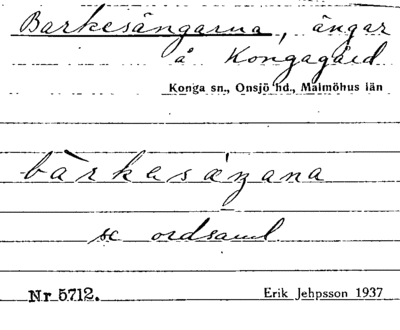 Barkesängarna, ängar
å Kongagård
Konga sn., Onsjö hd., Malmöhus län
bàrkesáŋana
se ordsaml
Nr 5712. Erik Jehpsson 1937